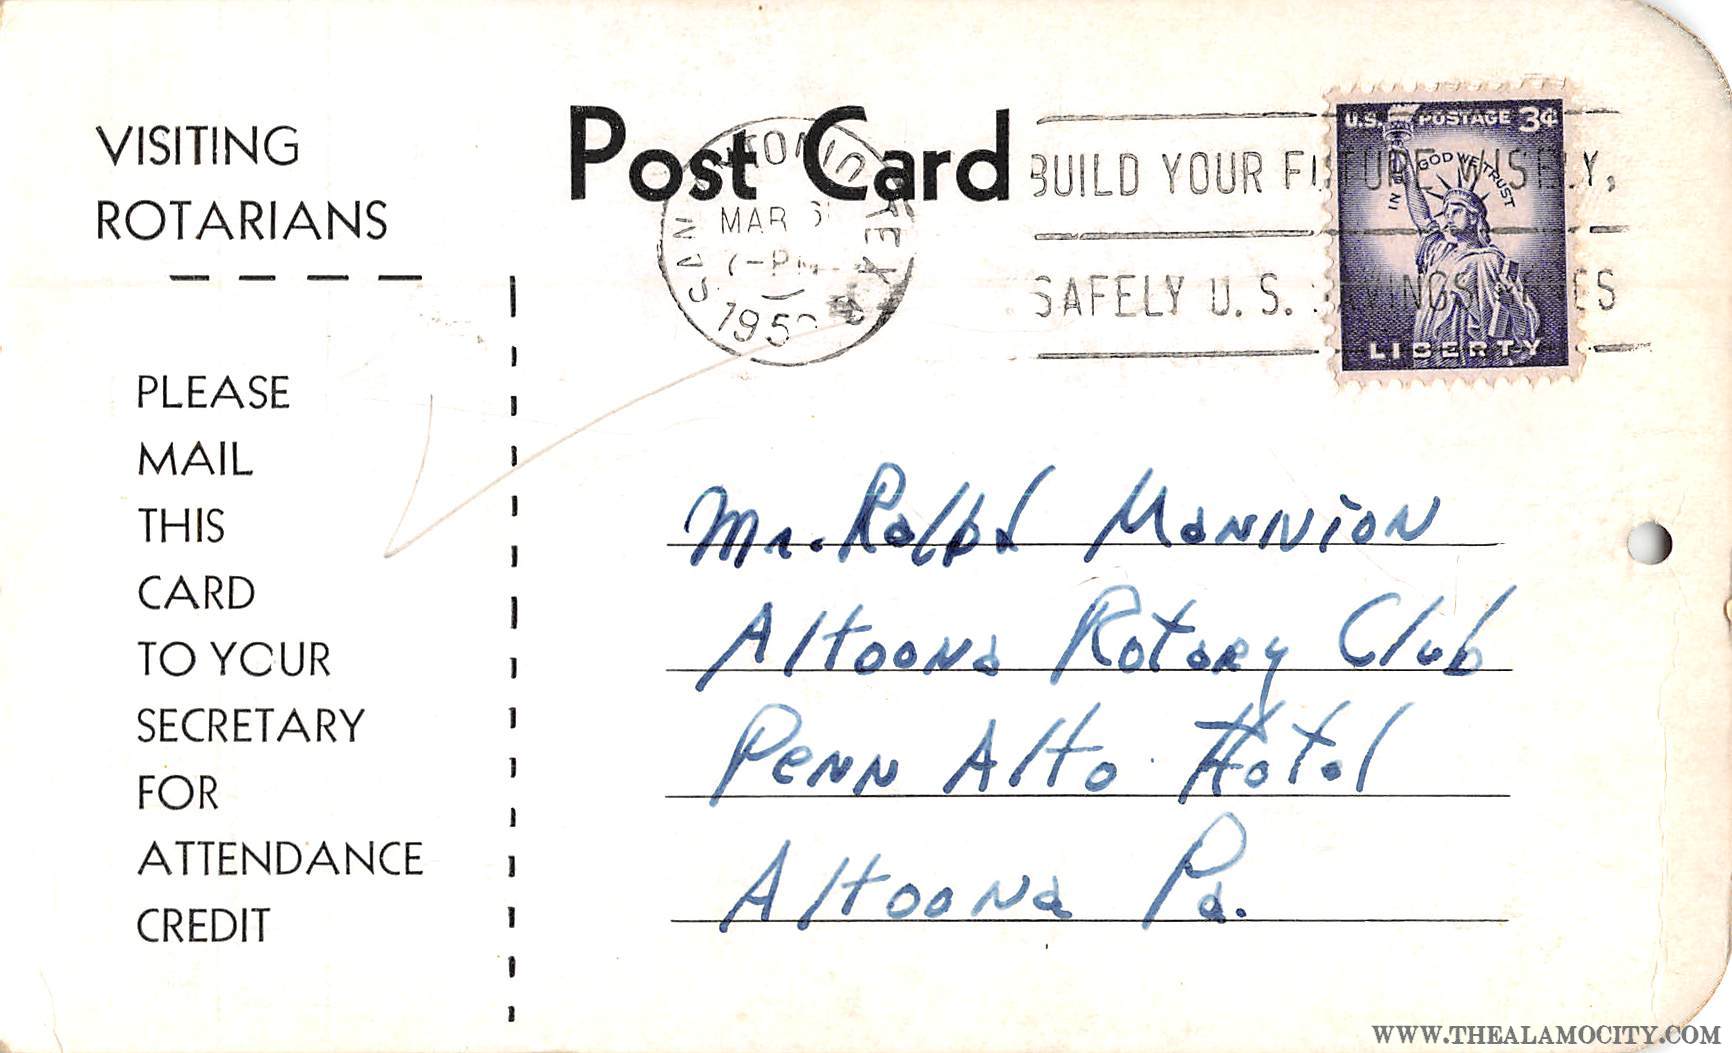 VISITING
ROTARIANS
PLEASE
MAIL
THIS
CARD
TO YOUR
SECRETARY
FOR
ATTENDANCE
CREDIT
Post Card
SAN ANTONIO TEX
MAR
PM
BUILD YOUR FUTURE WISELY,
SAFELY U. S. SAVINGS
U.S. POSTAGE 3¢
IN GOD WE TRUST
LIBERTY
Mr. Ralph Mannion
Altoona Rotary Club
Penn Alto Hotel
Altoona Pa.
WWW.THEALAMOCITY.COM